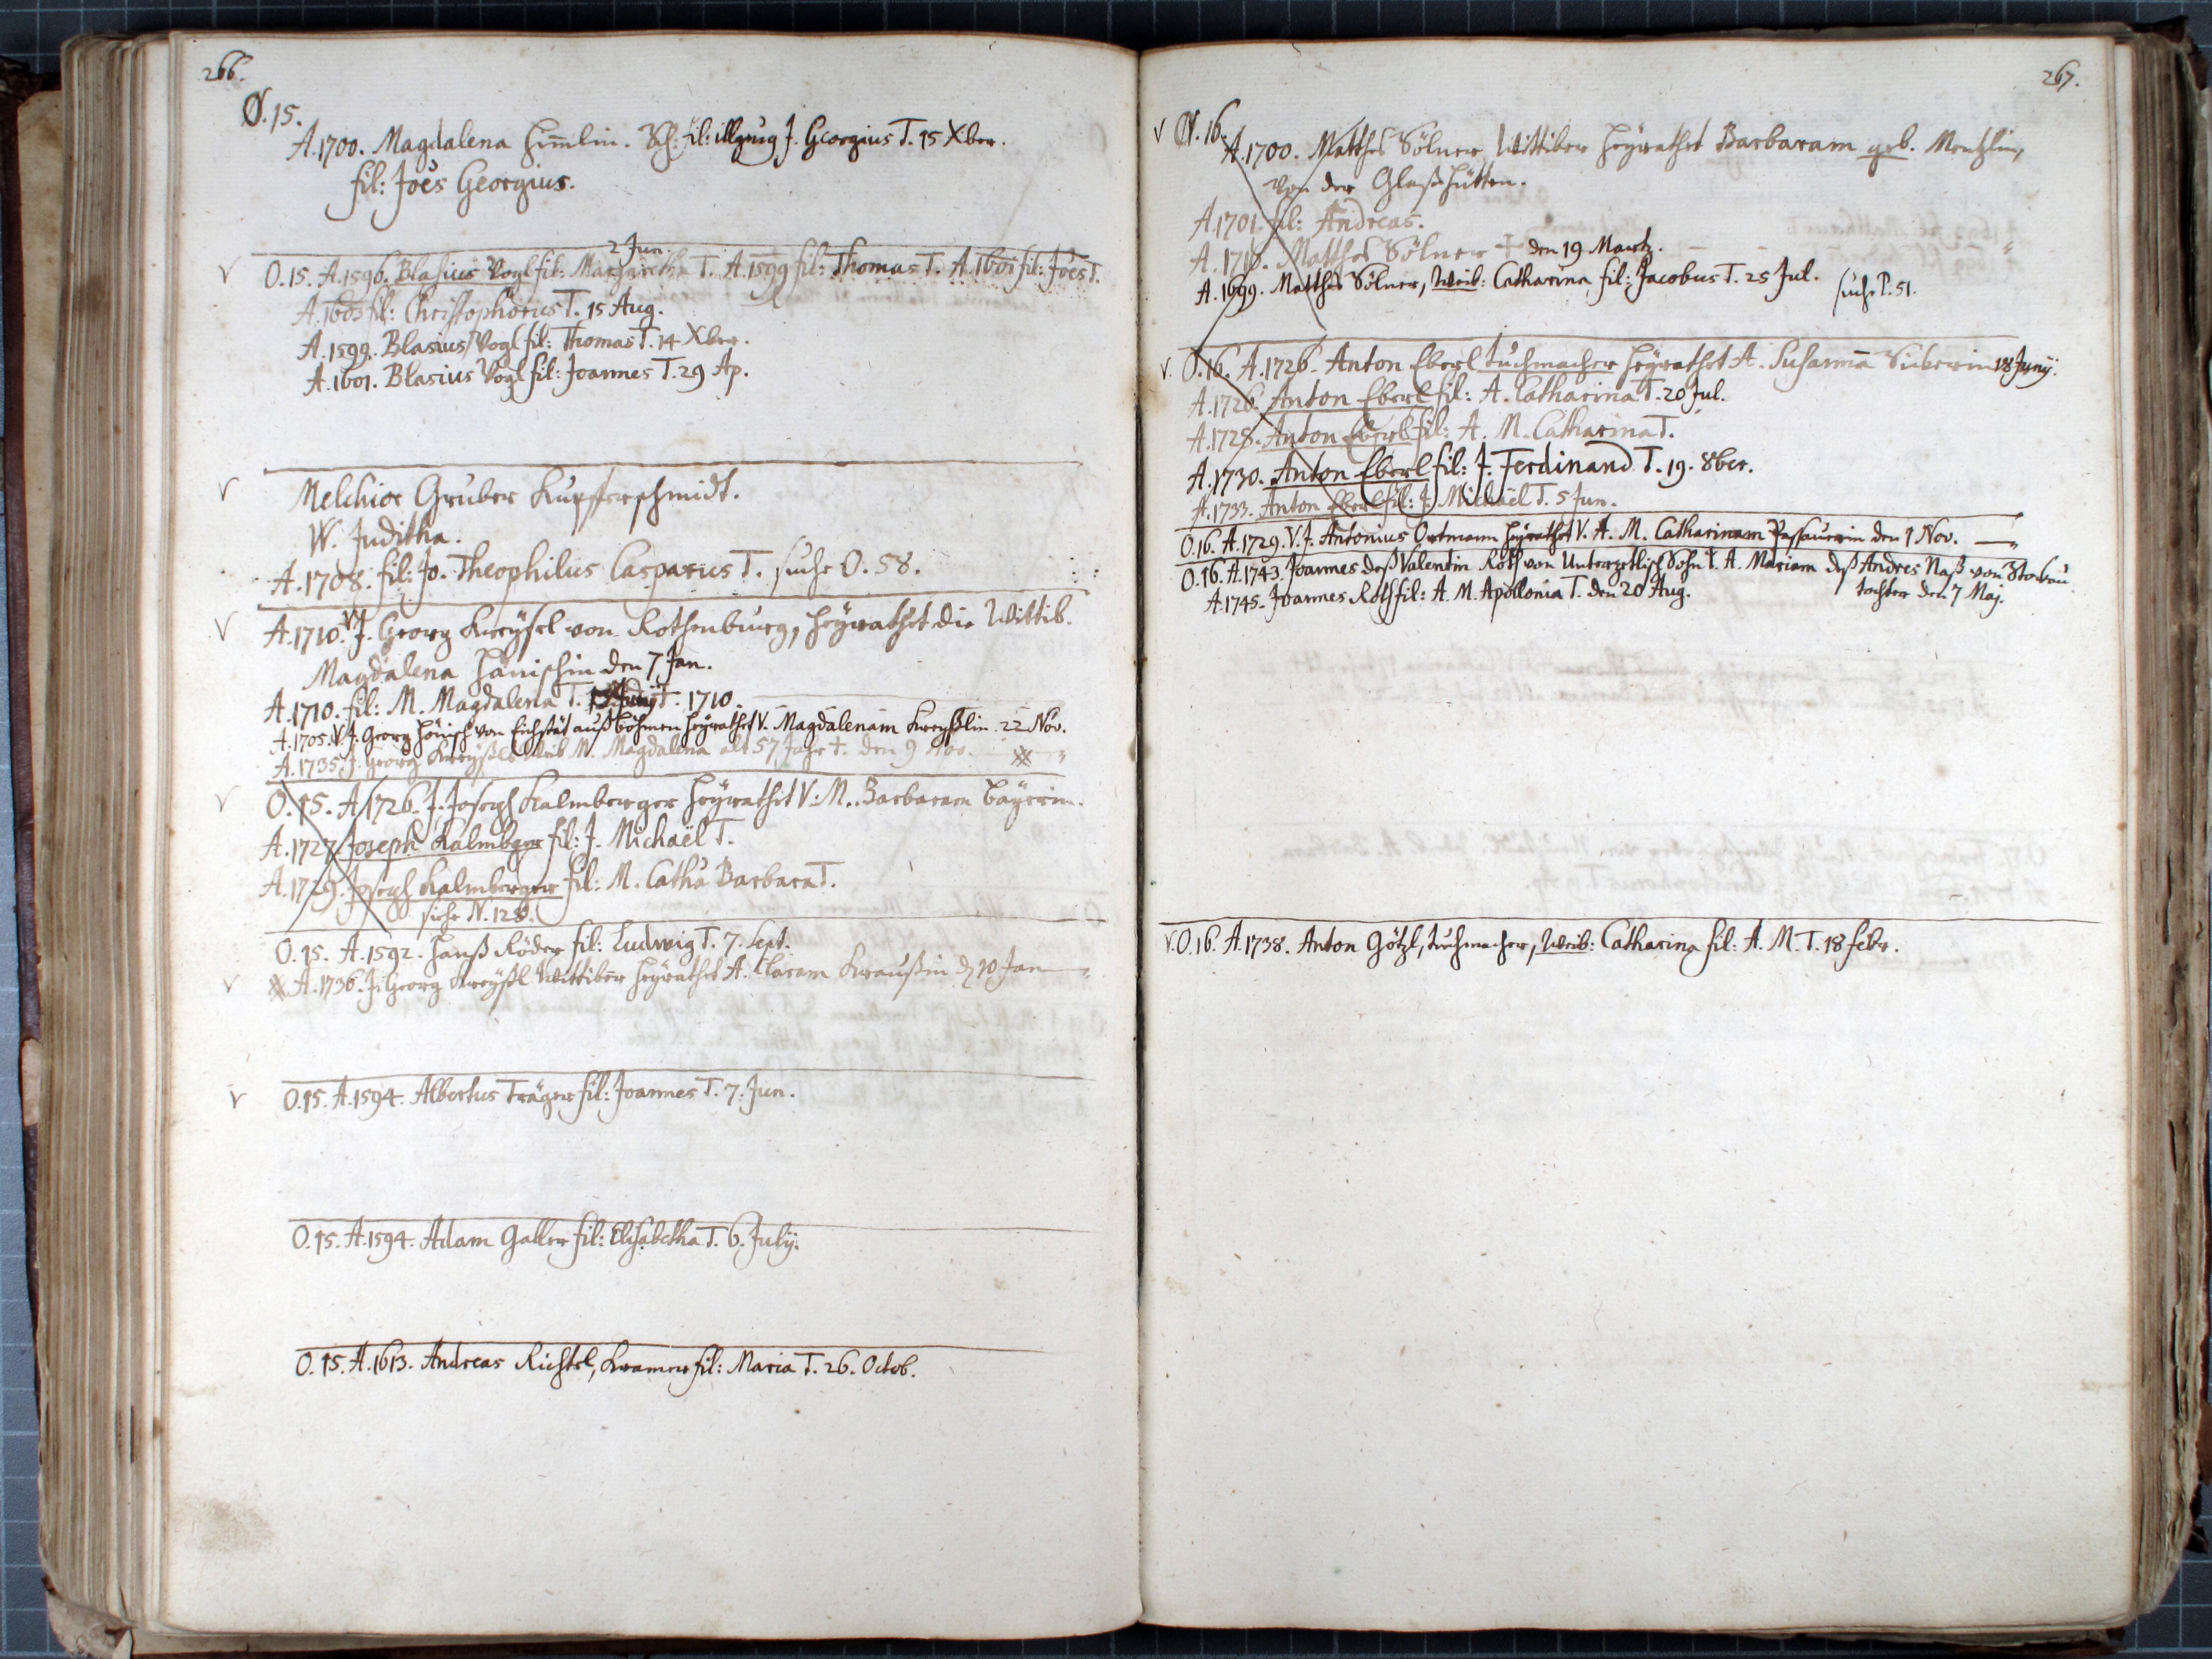 266.
O. 15.
A. 1700. Magdalena Himlin. fil: illegit J. Georgius T. 15 Xber.
fil: Joes Georgius.
2 Jun.
O. 15. A. 1596. Blasius Vogl fil: Margaretha T. A. 1599 fil: Thomas T. A. 1601 fil: Joes T.
A. 1603 fil: Christophorus T. 15 Aug.
A. 1599. Blasius Vogl fil: Thomas T. 14 Xber.
A. 1601. Blasius Vogl fil: Joannes T. 29 Ap.
Melchior Gruber Kupferschmidt.
W. Juditha.
A. 1708. fil: Jo. Theophilus Casparus T. suche O. 58.
A. 1710. V. J. Georg Kreysel von Rothenburg, heyrathet die Wittib.
Magdalena Hänischin den 7 Jan.
A. 1710. fil: M. Magdalena T. 1710.
A. 1705. V. J. Georg Hönisch von Eichstät auß Böhmen heyrathet V. Magdalenam Kreyßlin. 22 Nov.
A. 1735. J. Georg Kreyßls Weib M. Magdalena alt 57 Jahr †. den 9 Nov.
O. 15. A. 1726. J. Joseph Kalmberger heyrathet V. M. Barbaram Bayrin.
A. 1727. Joseph Kalmberger fil: J. Michaël T.
A. 1729. Joseph Kalmberger fil: M. Catha Barbara T.
siehe N. 128.
O. 15. A. 1592. Hanß Röder fil: Ludwig T. 7. Sept.
A. 1736. J. Georg Kreyßl Wittiber heyrathet A. Claram Kraußin d 10 Jan
O. 15. A. 1594. Albertus Träger fil: Joannes T. 7. Jun.
O. 15. A. 1594. Adam Galler fil: Elisabetha T. 6. Julij.
O. 15. A. 1613. Andreas Richtel, Kramer fil: Maria T. 26. Octob.
267.
O. 16.
A. 1700. Matthes Sölner, Wittiber heyrathet Barbaram geb. Mentzlin,
von der Glaßhütten.
A. 1701. fil: Andreas.
A. 1710. Matthes Sölner † den 19 Martz.
A. 1699. Matthes Sölner, Weib: Catharina, fil: Jacobus T. 25 Jul. suche P. 51.
O. 16. A. 1726. Anton Eberl Tuchmacher heyrathet A. Susanna Sickerin 18 Junij.
A. 1726. Anton Eberl fil: A. Catharina T. 20 Jul.
A. 1728. Anton Eberl fil: A. M. Catharina T.
A. 1730. Anton Eberl fil: J. Ferdinand T. 19. 8ber.
A. 1733. Anton Eberl fil: J. Michaël T. 5 Jun.
O. 16. A. 1729. V. J. Antonius Ortmann heyrathet V. A. M. Catharinam Passauerin den 1 Nov.
O. 16. A. 1743. Joannes deß Valentin Roth von Sohn A. Mariam deß Andres Naß von Störbau
tochter den 7 Maj.
A. 1745. Joannes Roth fil: A. M. Apollonia T. den 20 Aug.
O. 16. A. 1738. Anton Götzl, Tuchmacher, Weib: Catharina fil: A. M. T. 18 febr.